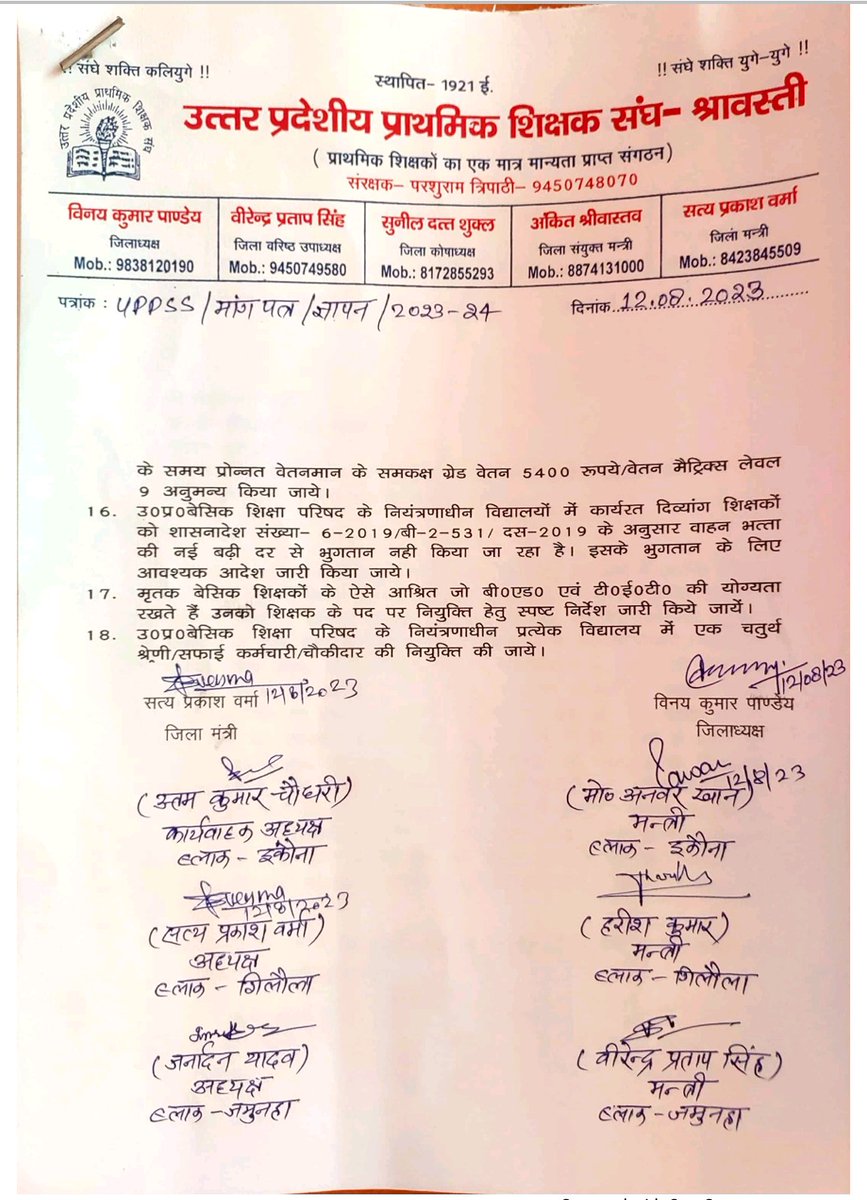 !! संघे शक्ति कलियुगे !!
स्थापित- 1921 ई.
!! संघे शक्ति युगे-युगे !!
उत्तर प्रदेशीय प्राथमिक शिक्षक संघ
उत्तर प्रदेशीय प्राथमिक शिक्षक संघ- श्रावस्ती
( प्राथमिक शिक्षकों का एक मात्र मान्यता प्राप्त संगठन)
संरक्षक- परशुराम त्रिपाठी- 9450748070
विनय कुमार पाण्डेय
जिलाध्यक्ष
Mob.: 9838120190
वीरेन्द्र प्रताप सिंह
जिला वरिष्ठ उपाध्यक्ष
Mob.: 9450749580
सुनील दत्त शुक्ल
जिला कोषाध्यक्ष
Mob.: 8172855293
अंकित श्रीवास्तव
जिला संयुक्त मन्त्री
Mob.: 8874131000
सत्य प्रकाश वर्मा
जिला मन्त्री
Mob.: 8423845509
पत्रांक : UPPSS/मांग पत्र/ज्ञापन/2023-24
दिनांक 12.08.2023
के समय प्रोन्नत वेतनमान के समकक्ष ग्रेड वेतन 5400 रूपये/वेतन मैट्रिक्स लेवल
9 अनुमन्य किया जाये।
16. उ०प्र०बेसिक शिक्षा परिषद के नियंत्रणाधीन विद्यालयों में कार्यरत दिव्यांग शिक्षकों
को शासनादेश संख्या- 6-2019/बी-2-531/ दस-2019 के अनुसार वाहन भत्ता
की नई बढ़ी दर से भुगतान नही किया जा रहा है। इसके भुगतान के लिए
आवश्यक आदेश जारी किया जाये।
17. मृतक बेसिक शिक्षकों के ऐसे आश्रित जो बी०एड० एवं टी०ई०टी० की योग्यता
रखते हैं उनको शिक्षक के पद पर नियुक्ति हेतु स्पष्ट निर्देश जारी किये जायें।
18. उ०प्र०बेसिक शिक्षा परिषद के नियंत्रणाधीन प्रत्येक विद्यालय में एक चतुर्थ
श्रेणी/सफाई कर्मचारी/चौकीदार की नियुक्ति की जाये।
सत्य प्रकाश वर्मा 12/8/2023
जिला मंत्री
12/08/23
विनय कुमार पाण्डेय
जिलाध्यक्ष
(उत्तम कुमार चौधरी)
कार्यवाहक अध्यक्ष
ब्लाक - इकौना
12/8/23
(मो० अनवर खान)
मन्त्री
ब्लाक - इकौना
12/8/2023
(सत्य प्रकाश वर्मा)
अध्यक्ष
ब्लाक - गिलौला
(हरीश कुमार)
मन्त्री
ब्लाक - गिलौला
(जनार्दन यादव)
अध्यक्ष
ब्लाक - जमुनहा
(वीरेन्द्र प्रताप सिंह)
मन्त्री
ब्लाक - जमुनहा